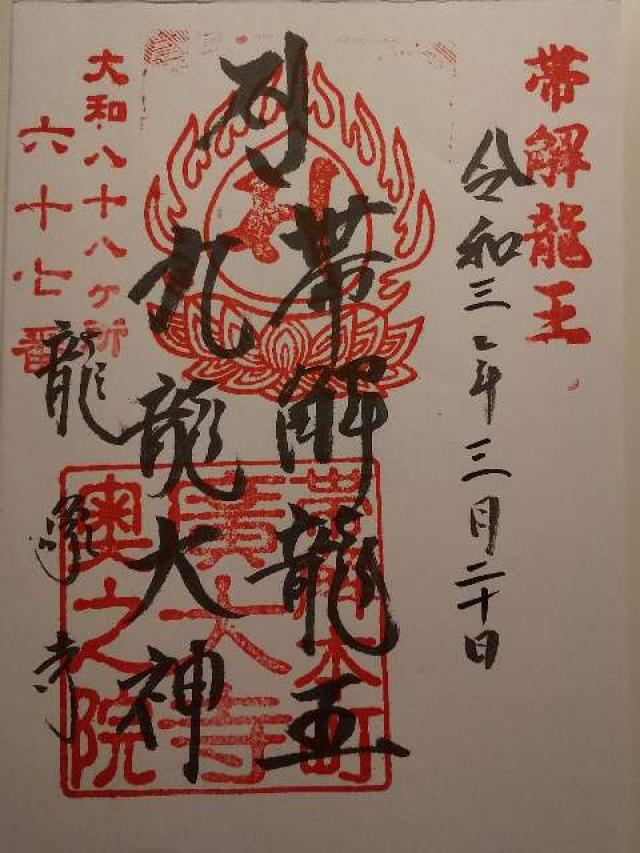 帯解龍王
令和三年三月二十日
帯解龍王
九龍大神
大和八十八ヶ所
六十七番
龍象寺
帯解本町
廣大寺
奥之院